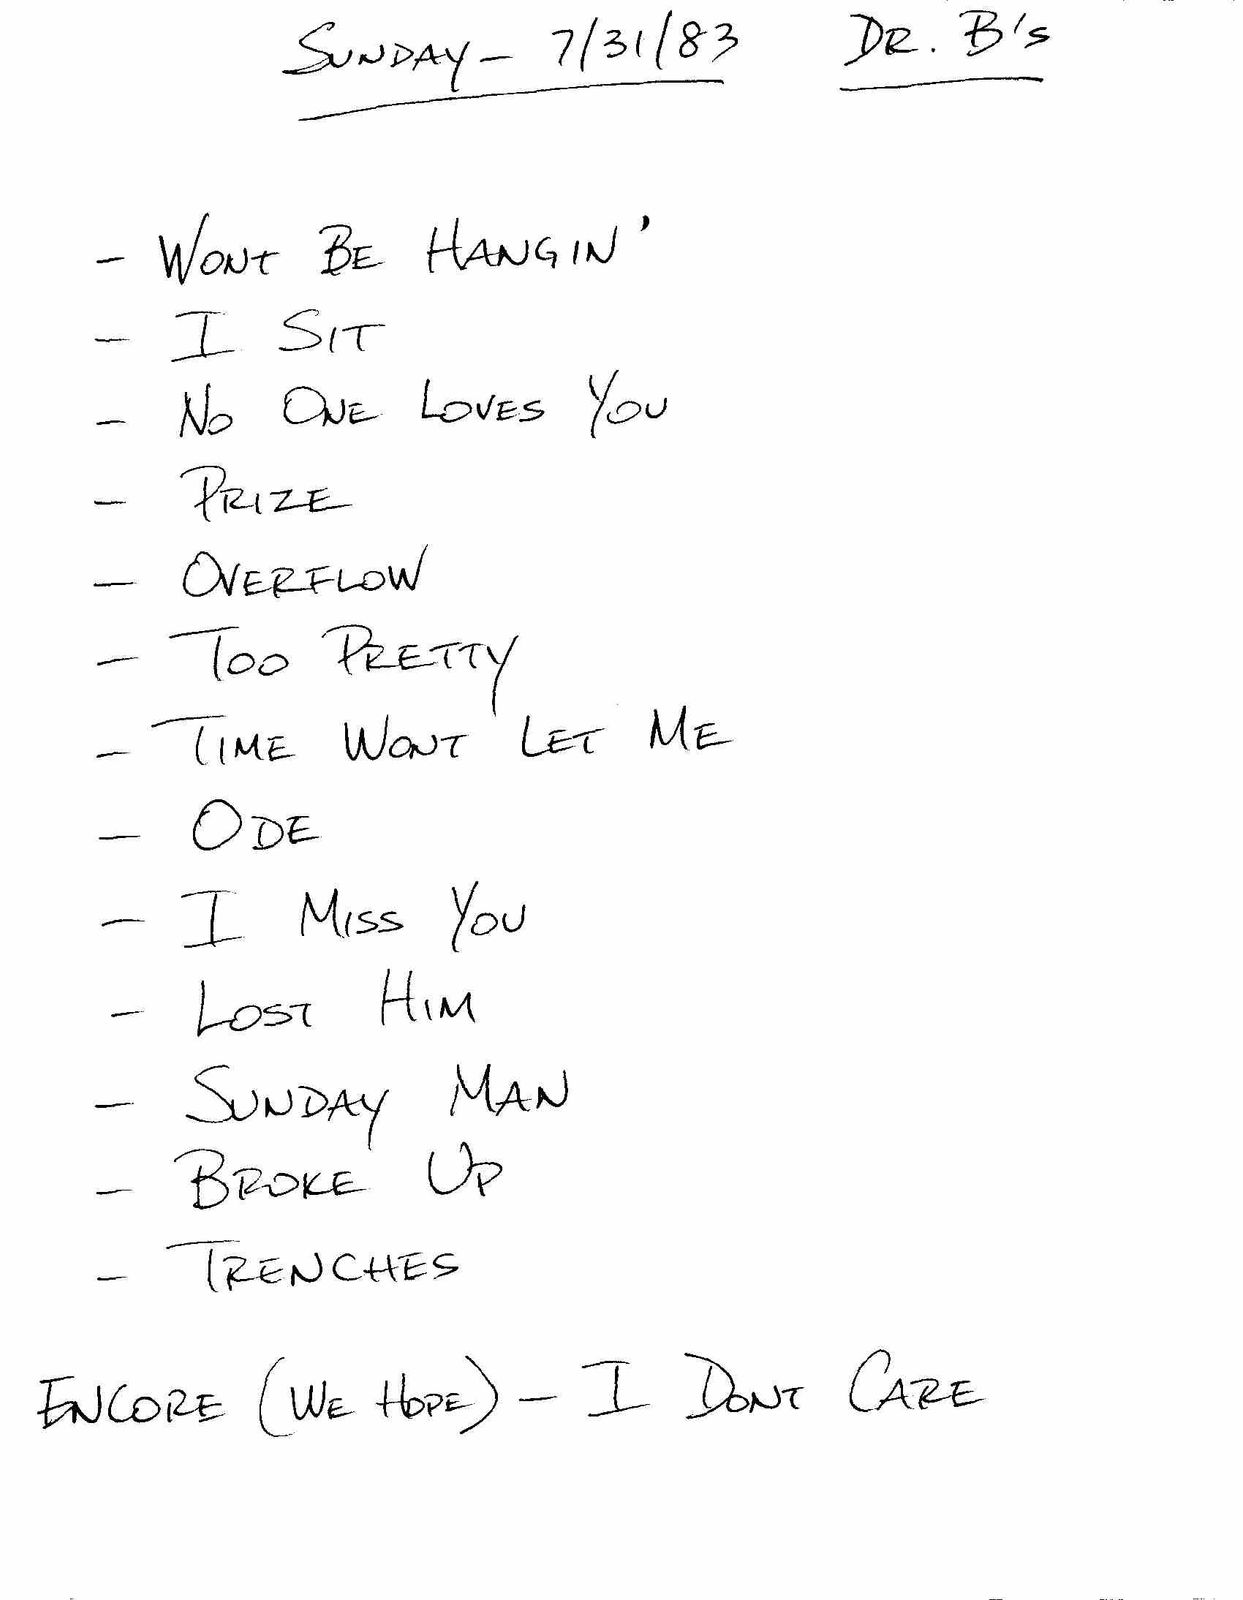 SUNDAY - 7/31/83 DR. B's
- WONT BE HANGIN'
- I SIT
- NO ONE LOVES YOU
- PRIZE
- OVERFLOW
- TOO PRETTY
- TIME WONT LET ME
- ODE
- I MISS YOU
- LOST HIM
- SUNDAY MAN
- BROKE UP
- TRENCHES
ENCORE (WE HOPE) - I DONT CARE